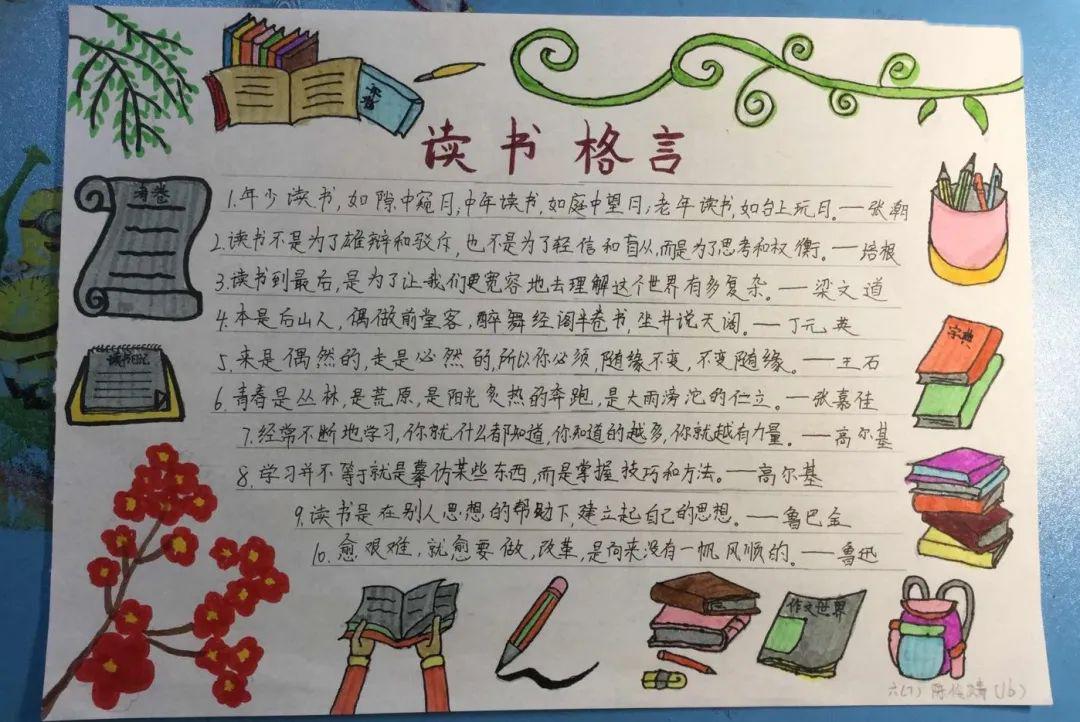 读书格言
1.年少读书,如隙中窥月;中年读书,如庭中望月;老年读书,如台上玩月。—张潮
2.读书不是为了雄辩和驳斥,也不是为了轻信和盲从,而是为了思考和权衡。—培根
3.读书到最后,是为了让我们更宽容地去理解这个世界有多复杂。—梁文道
4.本是后山人,偶做前堂客,醉舞经阁半卷书,坐井说天阔。—丁元英
5.来是偶然的,走是必然的,所以你必须,随缘不变,不变随缘。—王石
6.青春是丛林,是荒原,是阳光炙热的奔跑,是大雨滂沱的伫立。—张嘉佳
7.经常不断地学习,你就什么都知道,你知道的越多,你就越有力量。—高尔基
8.学习并不等于就是摹仿某些东西,而是掌握技巧和方法。—高尔基
9.读书是在别人思想的帮助下,建立起自己的思想。—鲁巴金
10.愈艰难,就愈要做,改革,是向来没有一帆风顺的。—鲁迅
考卷
读书日记
字典
作文世界